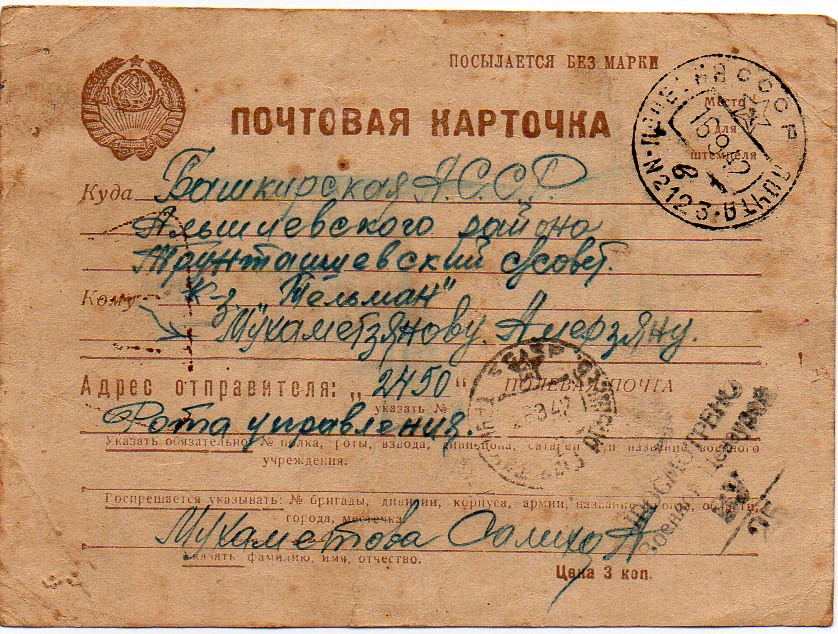 ПОСЫЛАЕТСЯ БЕЗ МАРКИ
ПОЧТОВАЯ КАРТОЧКА
Место
для
штемпеля
СССР
ПОЧТА
N2123
16 9 42
Куда Башкирская А.С.С.Р.
Альшеевского района
Трунташевский с/совет.
Кому К-з "Тельман"
Мухаметзянову. Амерзяну.
Адрес отправителя: "2450" ПОЛЕВАЯ ПОЧТА
указать №
Рота управления.
Указать обязательно: № полка, роты, взвода, дивизиона, батареи или название военного
учреждения.
Воспрещается указывать: № бригады, дивизии, корпуса, армии, название фронта, области,
города, местечка.
Мухаметова Салиха
указать фамилию, имя, отчество.
Цена 3 коп.
ПРОСМОТРЕНО
Военной Цензурой